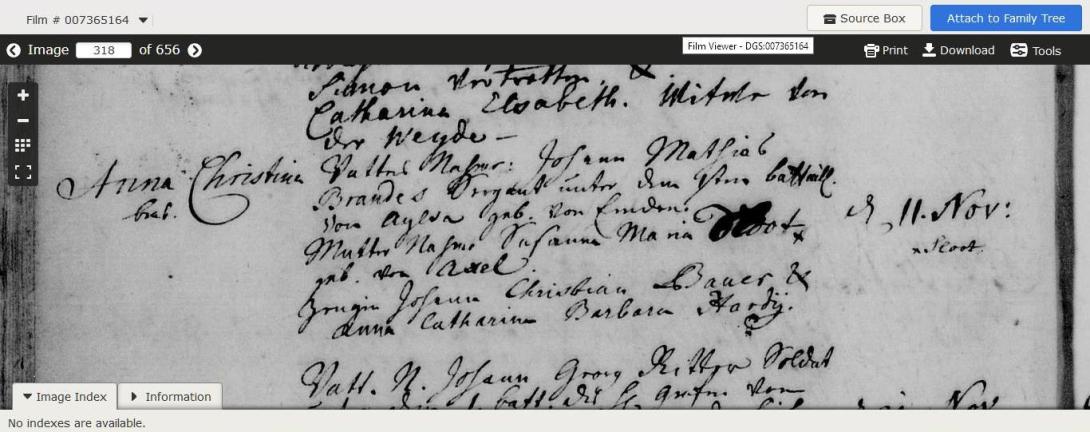 Film # 007365164
Source Box
Attach to Family Tree
Image 318 of 656
Film Viewer - DGS:007365164
Print
Download
Tools
Simon &
Catharina Elsabeth. Witwe von
der Weyde —
Anna Christina
Vatters Nahme: Johann Mathias
Brandes Sergant unter dem 1sten battaill.
von Aylva geb. von Emden:
d, 11. Nov:
Mutter Nahme Susanna Maria Sloot x
x Sloot.
geb. von Axel.
Zeugin Johann Christian Bauer &
Anna Catharina Barbara Hardij.
Vatt. N. Johann Georg Ritter Soldat
batt. von
Nov
Image Index
Information
No indexes are available.